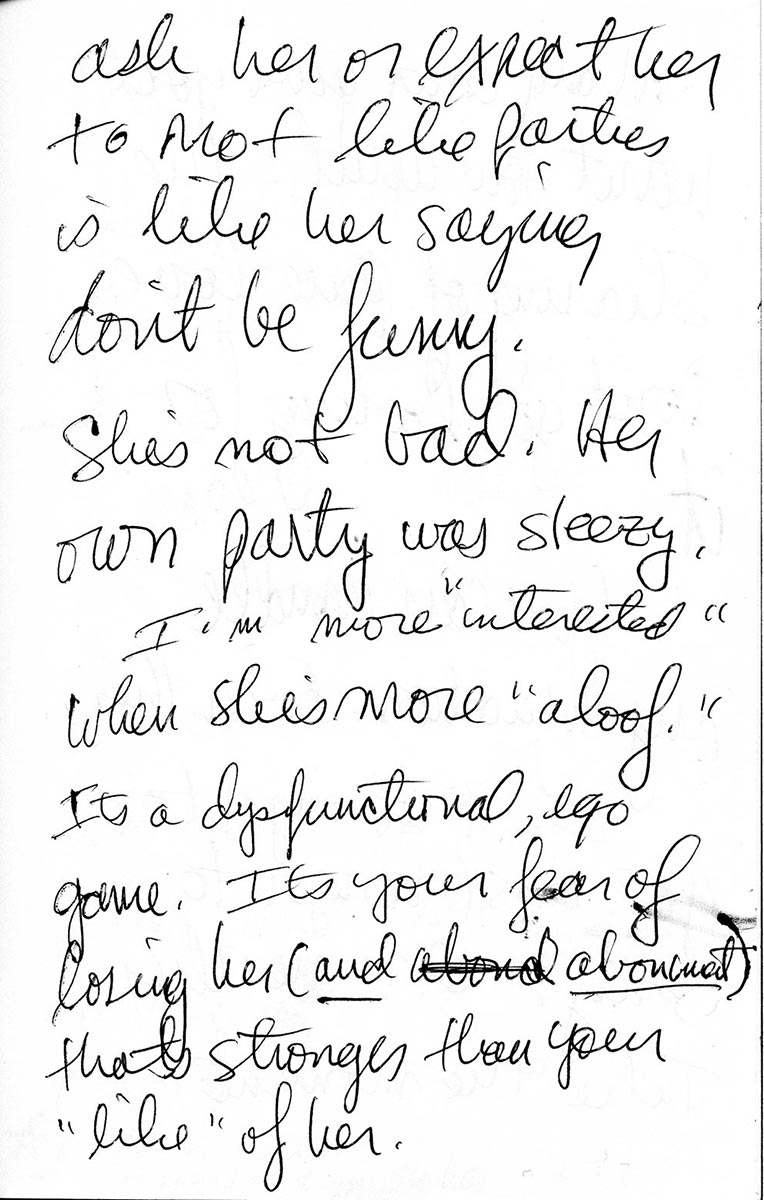 ask her or expect her
to not like parties
is like her saying
don't be funny.
She's not bad. Her
own party was sleezy.
I'm more "interested"
when she's more "aloof."
Its a dysfunctional, ego
game. Its your fear of
losing her (and
thats stronger than your
"like" of her.